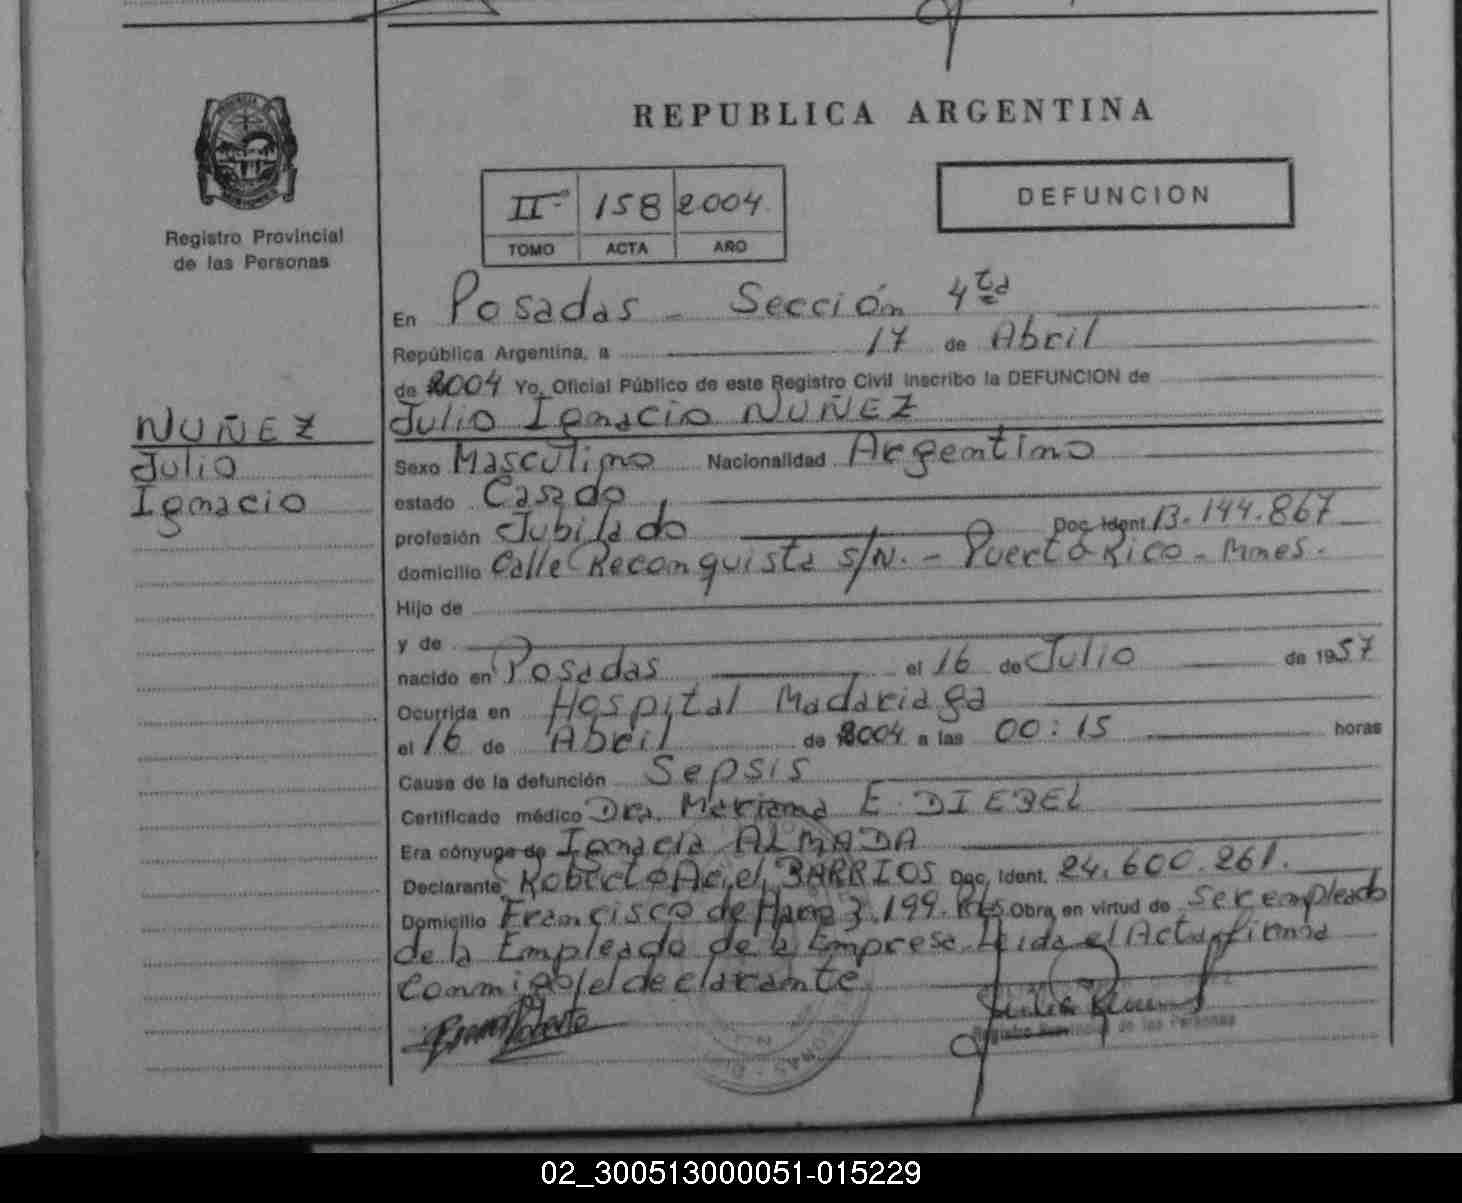 REPUBLICA ARGENTINA
DEFUNCION
IIº 158 2004
TOMO ACTA AÑO
Registro Provincial
de las Personas
En Posadas - Sección 4ta
República Argentina, a 17 de Abril
de 2004 Yo, Oficial Público de este Registro Civil inscribo la DEFUNCION de
Julio Ignacio NUÑEZ
NUÑEZ
Julio
Ignacio
Sexo Masculino Nacionalidad Argentino
estado Casado
profesión Jubilado Doc. Ident. 13.144.867
domicilio Calle Reconquista s/N. - Puerto Rico - Mnes.
Hijo de
y de
nacido en Posadas el 16 de Julio de 1957
Ocurrida en Hospital Madariaga
el 16 de Abril de 2004 a las 00:15 horas
Causa de la defunción Sepsis
Certificado médico Dra. Mariana E. DIEBEL
Era cónyuge de Ignacia ALMADA
Declarante Roberto Ariel BARRIOS Doc. Ident. 24.600.261.
Domicilio Francisco de Haro 3.199. Pdas. Obra en virtud de Ser empleado
de la Empleado de la Empresa. Leida el Acta, firma
conmigo, el declarante
Registro Provincial de las Personas
02_300513000051-015229